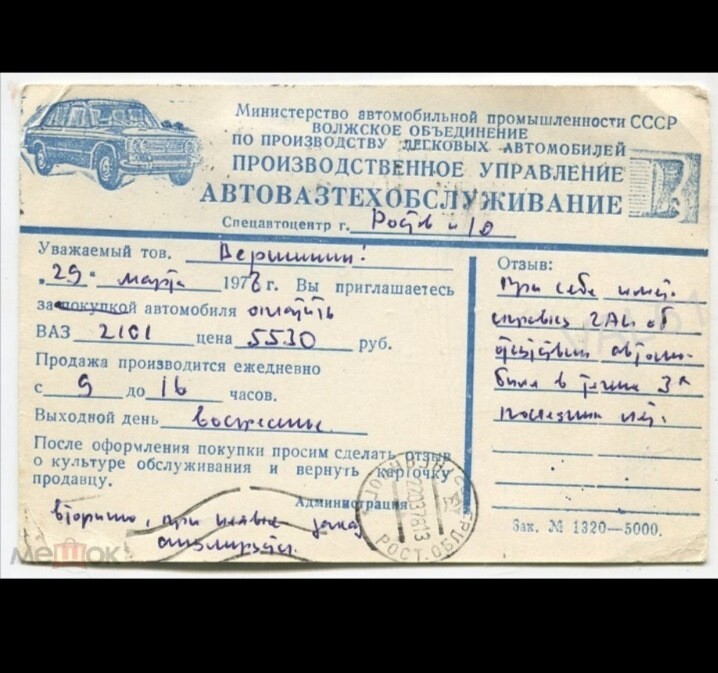 Министерство автомобильной промышленности СССР
ВОЛЖСКОЕ ОБЪЕДИНЕНИЕ
ПО ПРОИЗВОДСТВУ ЛЕГКОВЫХ АВТОМОБИЛЕЙ
ПРОИЗВОДСТВЕННОЕ УПРАВЛЕНИЕ
АВТОВАЗТЕХОБСЛУЖИВАНИЕ
Спецавтоцентр г. Ростов н/Д
Уважаемый тов. Вершинин!
„29" марта 1978 г. Вы приглашаетесь
за покупкой автомобиля оплатить
ВАЗ 2101 цена 5530 руб.
Продажа производится ежедневно
с 9 до 16 часов.
Выходной день воскресенье.
После оформления покупки просим сделать отзыв
о культуре обслуживания и вернуть карточку
продавцу.
Администрация
вторично, при неявке заказ
аннулируется.
Отзыв:
При себе иметь
справку ГАИ об
отсутствии автомо-
биля в течении 3х
последних лет.
Зак. № 1320—5000.
РОСТ. ОБЛ.
VAL61
мешок